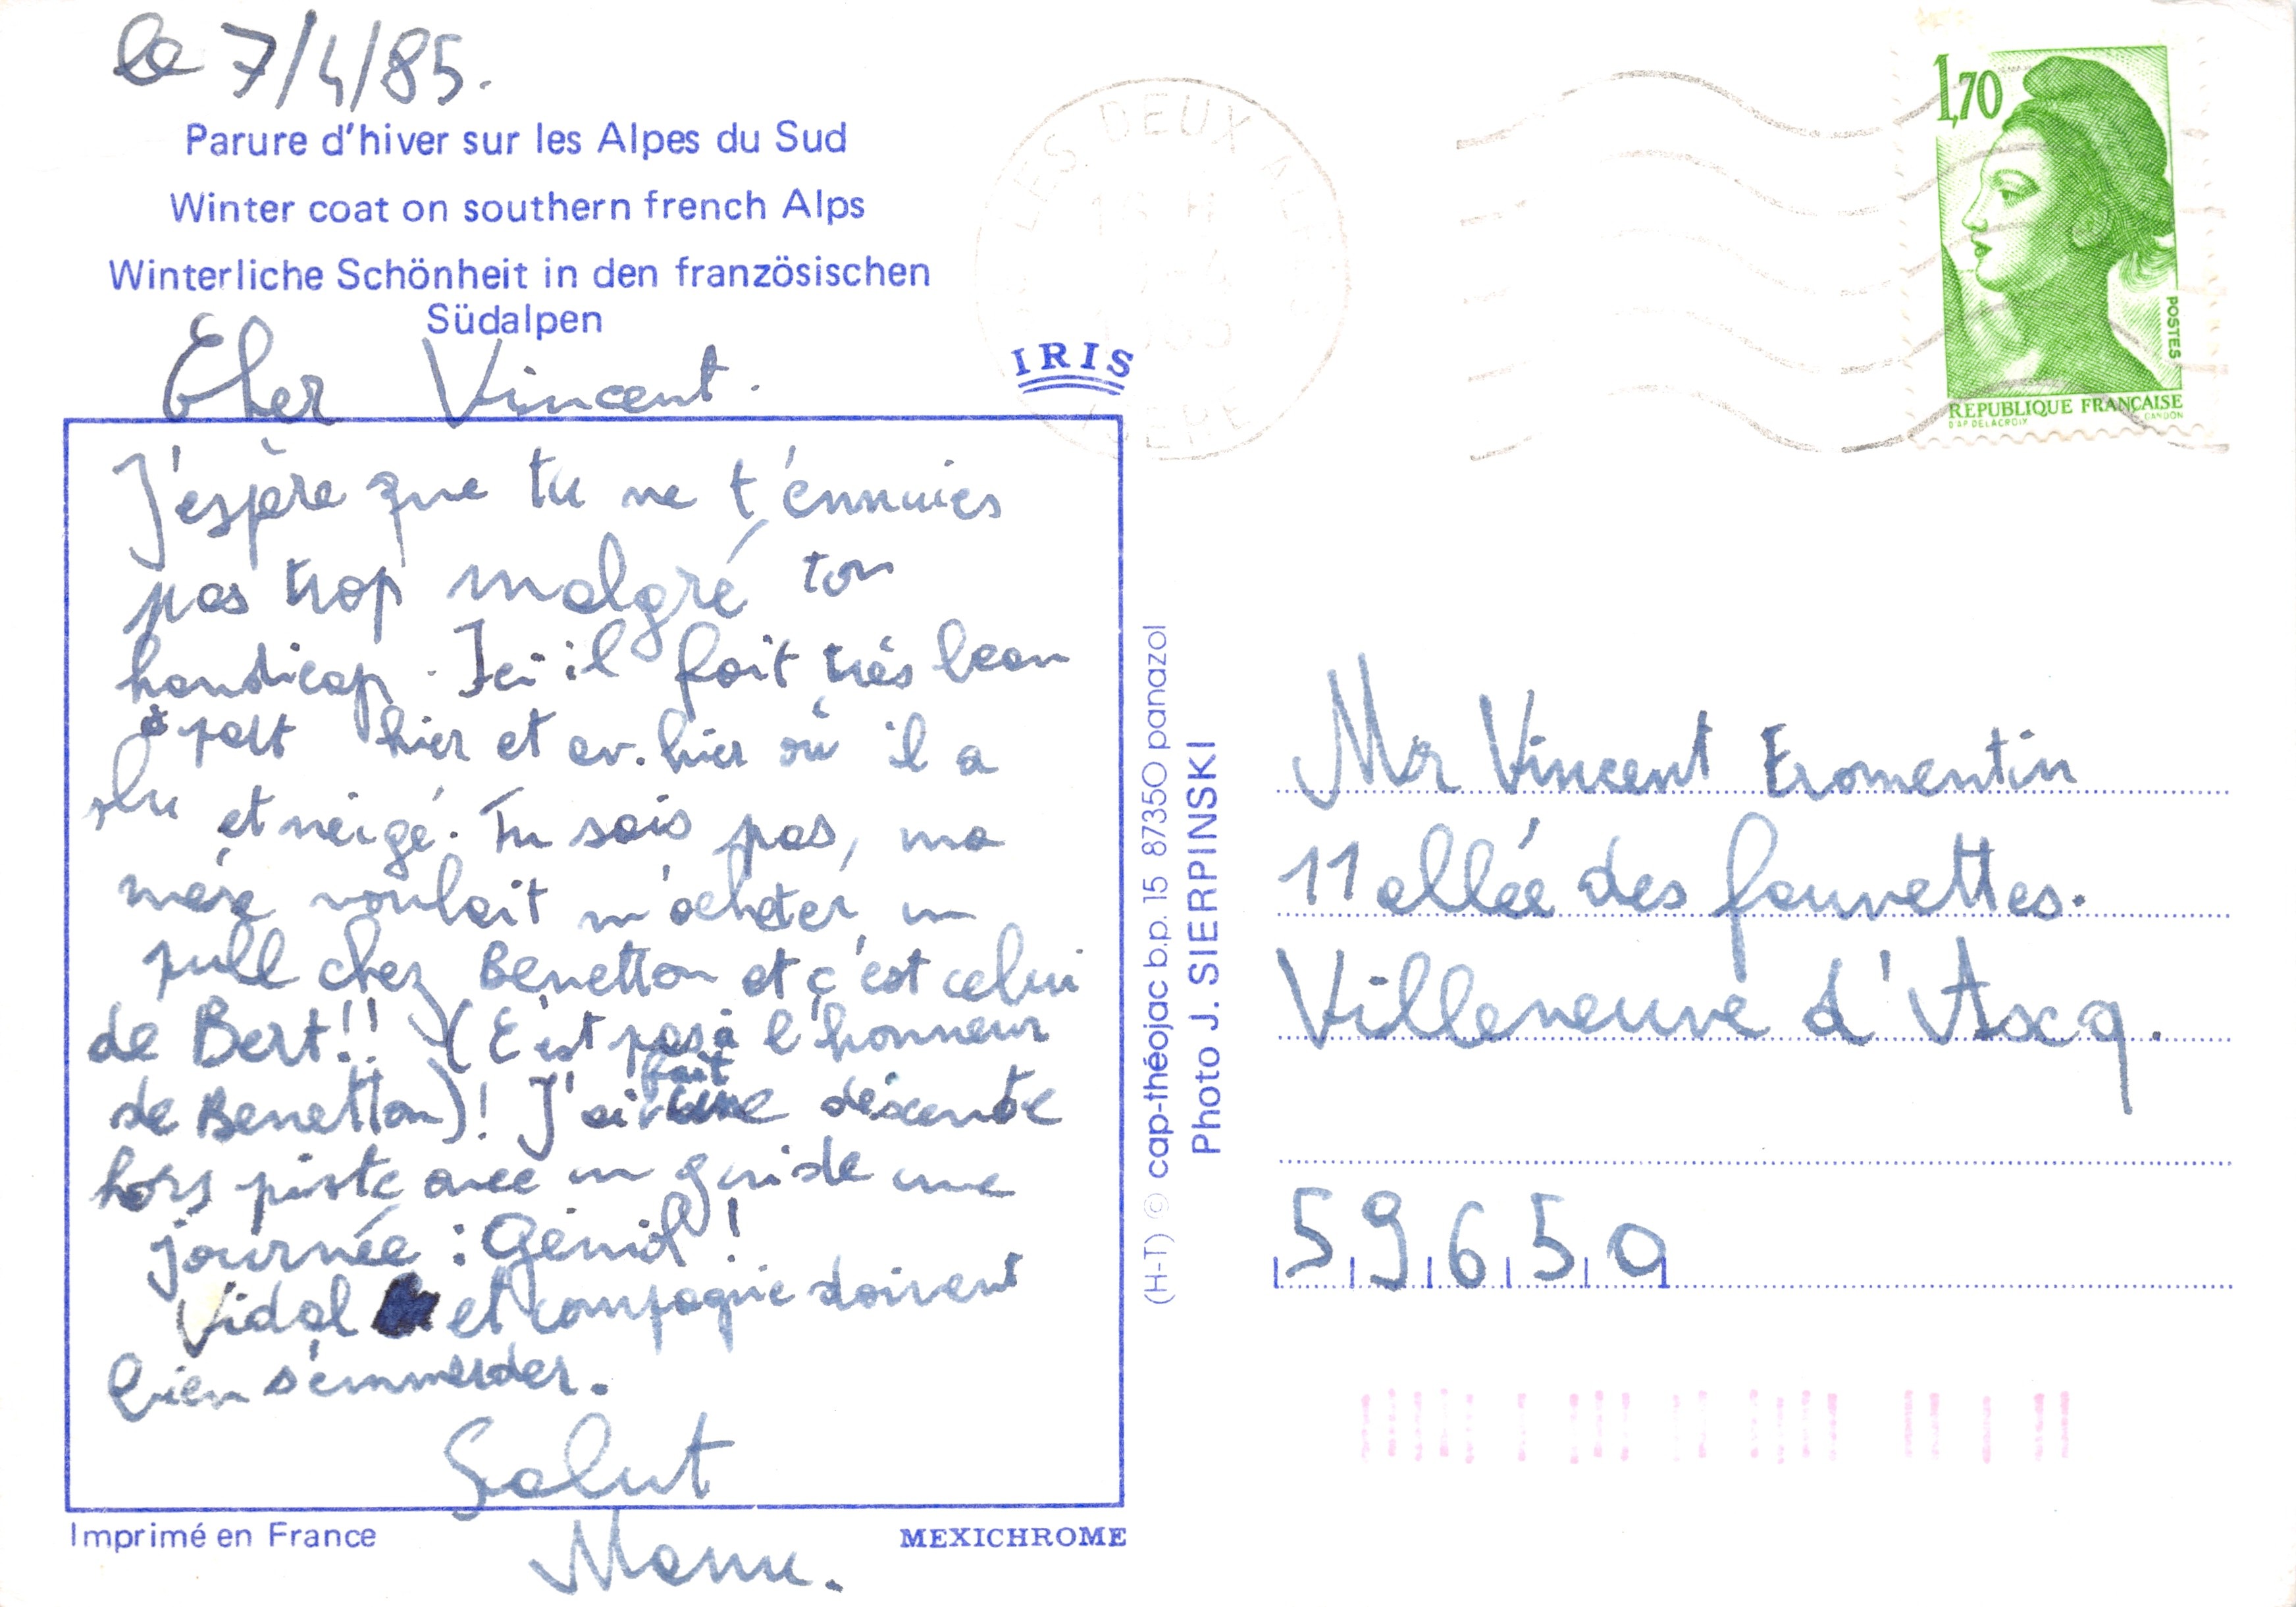 le 7/4/85.
Parure d'hiver sur les Alpes du Sud
Winter coat on southern french Alps
Winterliche Schönheit in den französischen
Südalpen
Cher Vincent.
J'espère que tu ne t'ennuies
pas trop malgré ton
handicap. Ici il fait très beau
à part hier et av. hier où il a
plu et neigé. Tu sais pas, ma
mère voulait m'acheter un
pull chez Benetton et c'est celui
de Bert!! (C'est pas à l'honneur
de Benetton)! J'ai fait une descente
hors piste avec un guide une
journée : Génial !
Vidal et compagnie doivent
bien s'emmerder.
Salut
Manu.
Imprimé en France
MEXICHROME
IRIS
LES DEUX ALPES
16 H
-4
ISERE
(H-T) © cap-théojac b.p. 15 87350 panazol
Photo J. SIERPINSKI
1,70
POSTES
REPUBLIQUE FRANÇAISE
D'AP. DELACROIX
GANDON
Mr Vincent Fromentin
11 allée des fauvettes.
Villeneuve d'Ascq.
59650